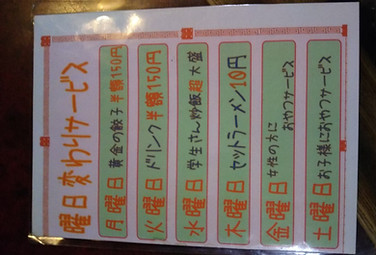 曜日変わりサービス
月曜日 黄金の餃子半額150円
火曜日 ドリンク半額150円
水曜日 学生さん炒飯超大盛
木曜日 セットラーメン10円
金曜日 女性の方に
おやつサービス
土曜日 お子様におやつサービス